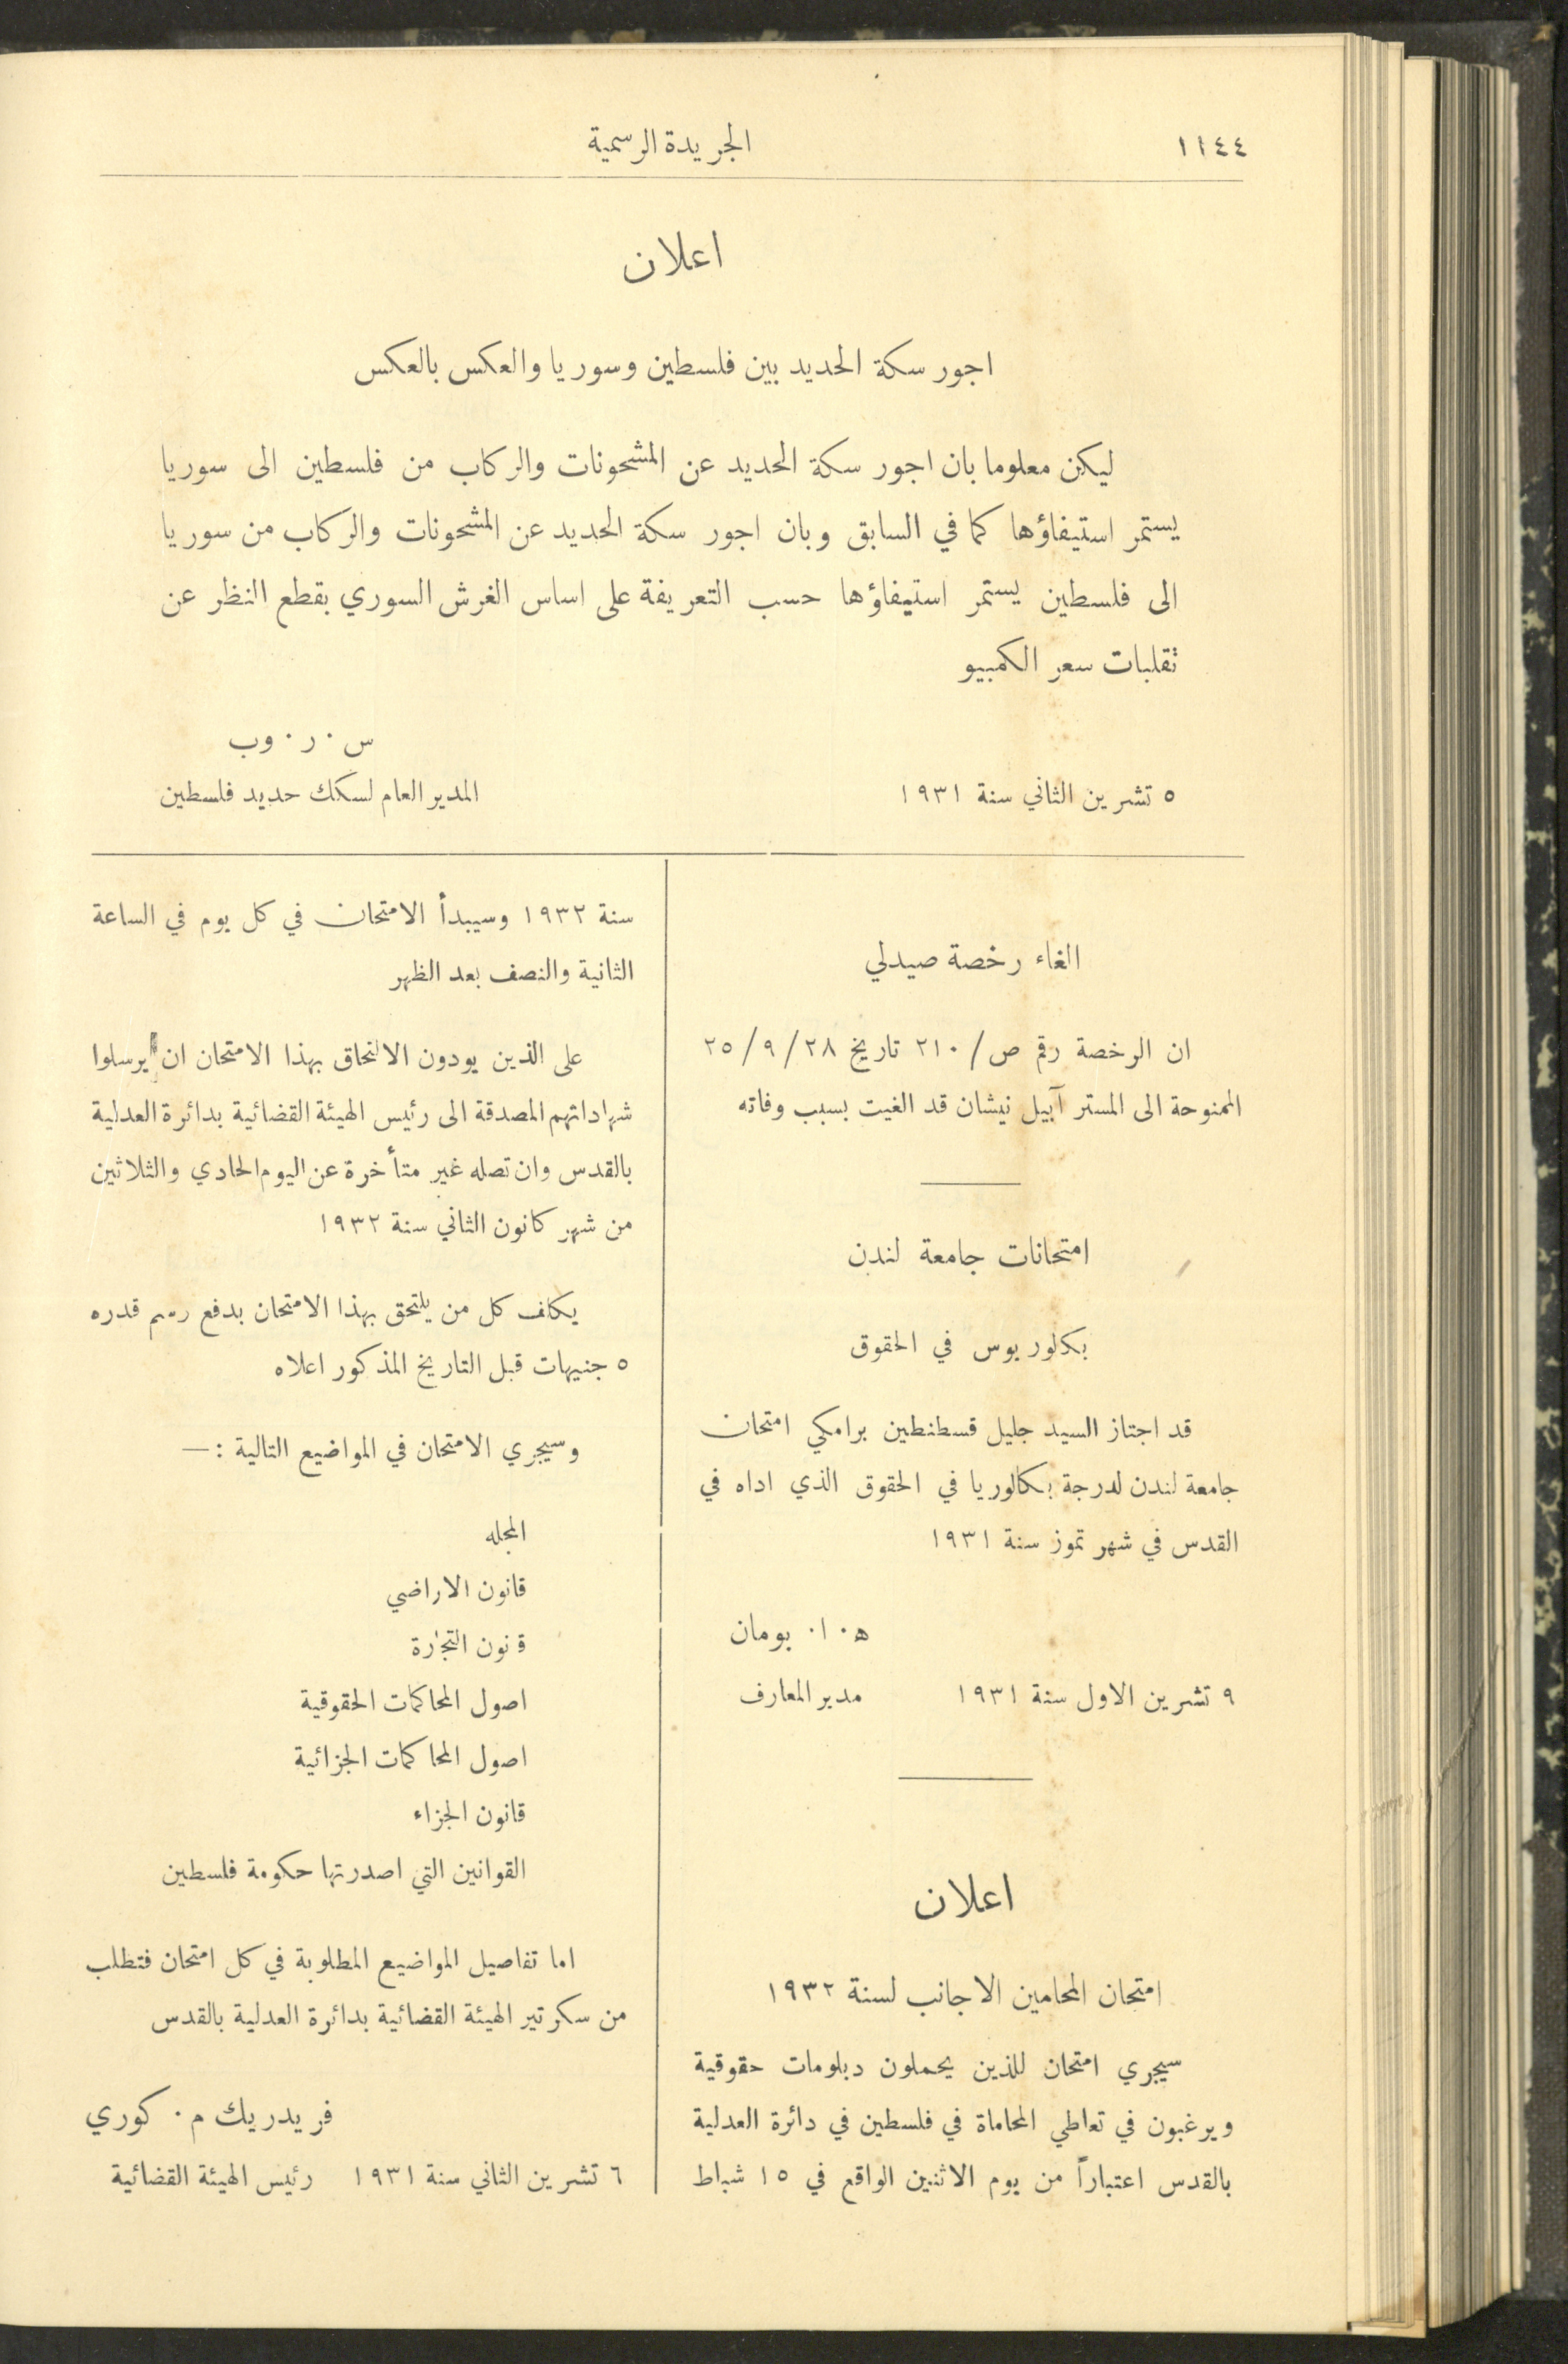 ١١٤٤
الجريدة الرسمية
اعلان
اجور سكة الحديد بين فلسطين وسوريا والعكس بالعكس
ليكن معلوما بان اجور سكة الحديد عن المشحونات والركاب من فلسطين الى سوريا
يستمر استيفاؤها كما في السابق وبان اجور سكة الحديد عن المشحونات والركاب من سوريا
الى فلسطين يستمر استيفاؤها حسب التعريفة على اساس الغرش السوري بقطع النظر عن
تقلبات سعر الكمبيو
س . ر . وب
٥ تشرين الثاني سنة ١٩٣١ المدير العام لسكك حديد فلسطين
الغاء رخصة صيدلي
ان الرخصة رقم ص/ ٢١٠ تاريخ ٢٨/ ٩/ ٢٥
الممنوحة الى المستر آبيل نيشان قد الغيت بسبب وفاته
امتحانات جامعة لندن
بكالوريوس في الحقوق
قد اجتاز السيد جليل قسطنطين برامكي امتحان
جامعة لندن لدرجة بكالوريا في الحقوق الذي اداه في
القدس في شهر تموز سنة ١٩٣١
ه . ا . بومان
٩ تشرين الاول سنة ١٩٣١ مدير المعارف
اعلان
امتحان المحامين الاجانب لسنة ١٩٣٢
سيجري امتحان للذين يحملون دبلومات حقوقية
ويرغبون في تعاطي المحاماة في فلسطين في دائرة العدلية
بالقدس اعتباراً من يوم الاثنين الواقع في ١٥ شباط
سنة ١٩٣٢ وسيبدأ الامتحان في كل يوم في الساعة
الثانية والنصف بعد الظهر
على الذين يودون الالتحاق بهذا الامتحان ان يرسلوا
شهاداتهم المصدقة الى رئيس الهيئة القضائية بدائرة العدلية
بالقدس وان تصله غير متأخرة عن اليوم الحادي والثلاثين
من شهر كانون الثاني سنة ١٩٣٢
يكلف كل من يلتحق بهذا الامتحان بدفع رسم قدره
٥ جنيهات قبل التاريخ المذكور اعلاه
وسيجري الامتحان في المواضيع التالية : —
المجله
قانون الاراضي
قانون التجارة
اصول المحاكمات الحقوقية
اصول المحاكمات الجزائية
قانون الجزاء
القوانين التي اصدرتها حكومة فلسطين
اما تفاصيل المواضيع المطلوبة في كل امتحان فتطلب
من سكرتير الهيئة القضائية بدائرة العدلية بالقدس
فريدريك م . كوري
٦ تشرين الثاني سنة ١٩٣١ رئيس الهيئة القضائية